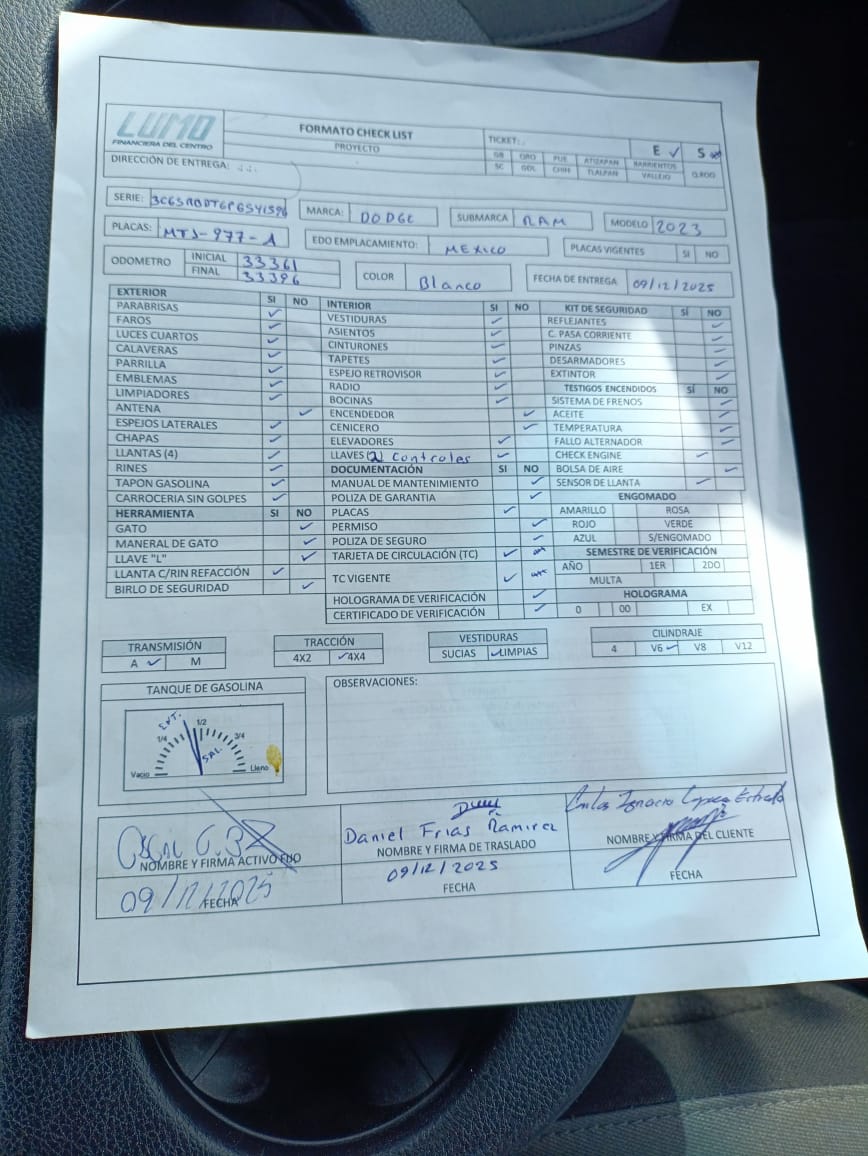 LUMO
FINANCIERA DEL CENTRO
FORMATO CHECK LIST
PROYECTO
TICKET:
E ✓ S
GB QRO PUE ATIZAPAN BARRIENTOS
SC GDL CHIH TLALPAN VALLEJO O.ROO
DIRECCIÓN DE ENTREGA:
SERIE: MARCA: DODGE SUBMARCA RAM MODELO 2023
PLACAS: MTJ-977-A EDO EMPLACAMIENTO: MEXICO PLACAS VIGENTES SI NO
ODOMETRO INICIAL 33361
FINAL 33396
COLOR Blanco FECHA DE ENTREGA 09/12/2025
EXTERIOR SI NO
PARABRISAS ✓
FAROS ✓
LUCES CUARTOS ✓
CALAVERAS ✓
PARRILLA ✓
EMBLEMAS ✓
LIMPIADORES ✓
ANTENA ✓
ESPEJOS LATERALES ✓
CHAPAS ✓
LLANTAS (4) ✓
RINES ✓
TAPON GASOLINA ✓
CARROCERIA SIN GOLPES ✓
HERRAMIENTA SI NO
GATO ✓
MANERAL DE GATO ✓
LLAVE "L" ✓
LLANTA C/RIN REFACCIÓN ✓
BIRLO DE SEGURIDAD ✓
INTERIOR SI NO
VESTIDURAS ✓
ASIENTOS ✓
CINTURONES ✓
TAPETES ✓
ESPEJO RETROVISOR ✓
RADIO ✓
BOCINAS ✓
ENCENDEDOR ✓
CENICERO ✓
ELEVADORES ✓
LLAVES (2) controles ✓
DOCUMENTACIÓN SI NO
MANUAL DE MANTENIMIENTO ✓
POLIZA DE GARANTIA ✓
PLACAS ✓
PERMISO ✓
POLIZA DE SEGURO ✓
TARJETA DE CIRCULACIÓN (TC) ✓
TC VIGENTE ✓
HOLOGRAMA DE VERIFICACIÓN ✓
CERTIFICADO DE VERIFICACIÓN ✓
KIT DE SEGURIDAD SÍ NO
REFLEJANTES ✓
C. PASA CORRIENTE ✓
PINZAS ✓
DESARMADORES ✓
EXTINTOR ✓
TESTIGOS ENCENDIDOS SÍ NO
SISTEMA DE FRENOS ✓
ACEITE ✓
TEMPERATURA ✓
FALLO ALTERNADOR ✓
CHECK ENGINE ✓
BOLSA DE AIRE ✓
SENSOR DE LLANTA ✓
ENGOMADO
AMARILLO ROSA
ROJO VERDE
AZUL S/ENGOMADO
SEMESTRE DE VERIFICACIÓN
AÑO 1ER 2DO
MULTA
HOLOGRAMA
0 00 EX
TRANSMISIÓN
A ✓ M
TRACCIÓN
4X2 ✓ 4X4
VESTIDURAS
SUCIAS ✓ LIMPIAS
CILINDRAJE
4 V6 ✓ V8 V12
TANQUE DE GASOLINA
ENT. 1/2
1/4 3/4
SAL.
Vacio Lleno
OBSERVACIONES:
NOMBRE Y FIRMA ACTIVO FIJO
09/12/2025
FECHA
Daniel Frias Ramirez
NOMBRE Y FIRMA DE TRASLADO
09/12/2025
FECHA
Carlos Ignacio Lopez Estrada
NOMBRE Y FIRMA DEL CLIENTE
FECHA